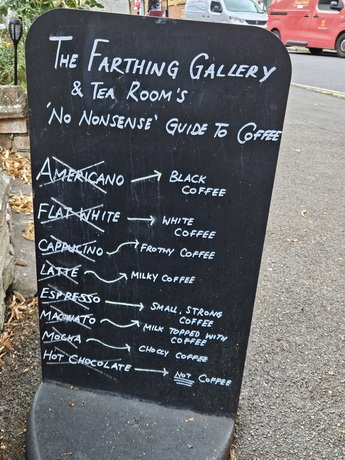 The Farthing Gallery
& Tea Room's
'No Nonsense' Guide To Coffee
Americano → Black
Coffee
Flat White → White
Coffee
Cappucino → Frothy Coffee
Latte → Milky Coffee
Espresso → Small, Strong
Coffee
Macchiato → Milk Topped With
Coffee
Mocha → Choccy Coffee
Hot Chocolate → Not Coffee